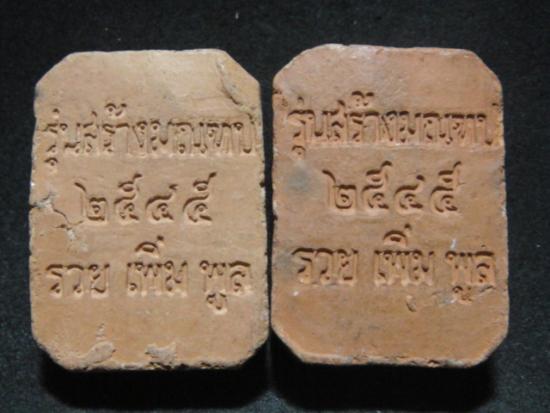 รุ่นสร้างมณฑป
๒๕๔๕
รวย เพิ่ม พูล
รุ่นสร้างมณฑป
๒๕๔๕
รวย เพิ่ม พูล